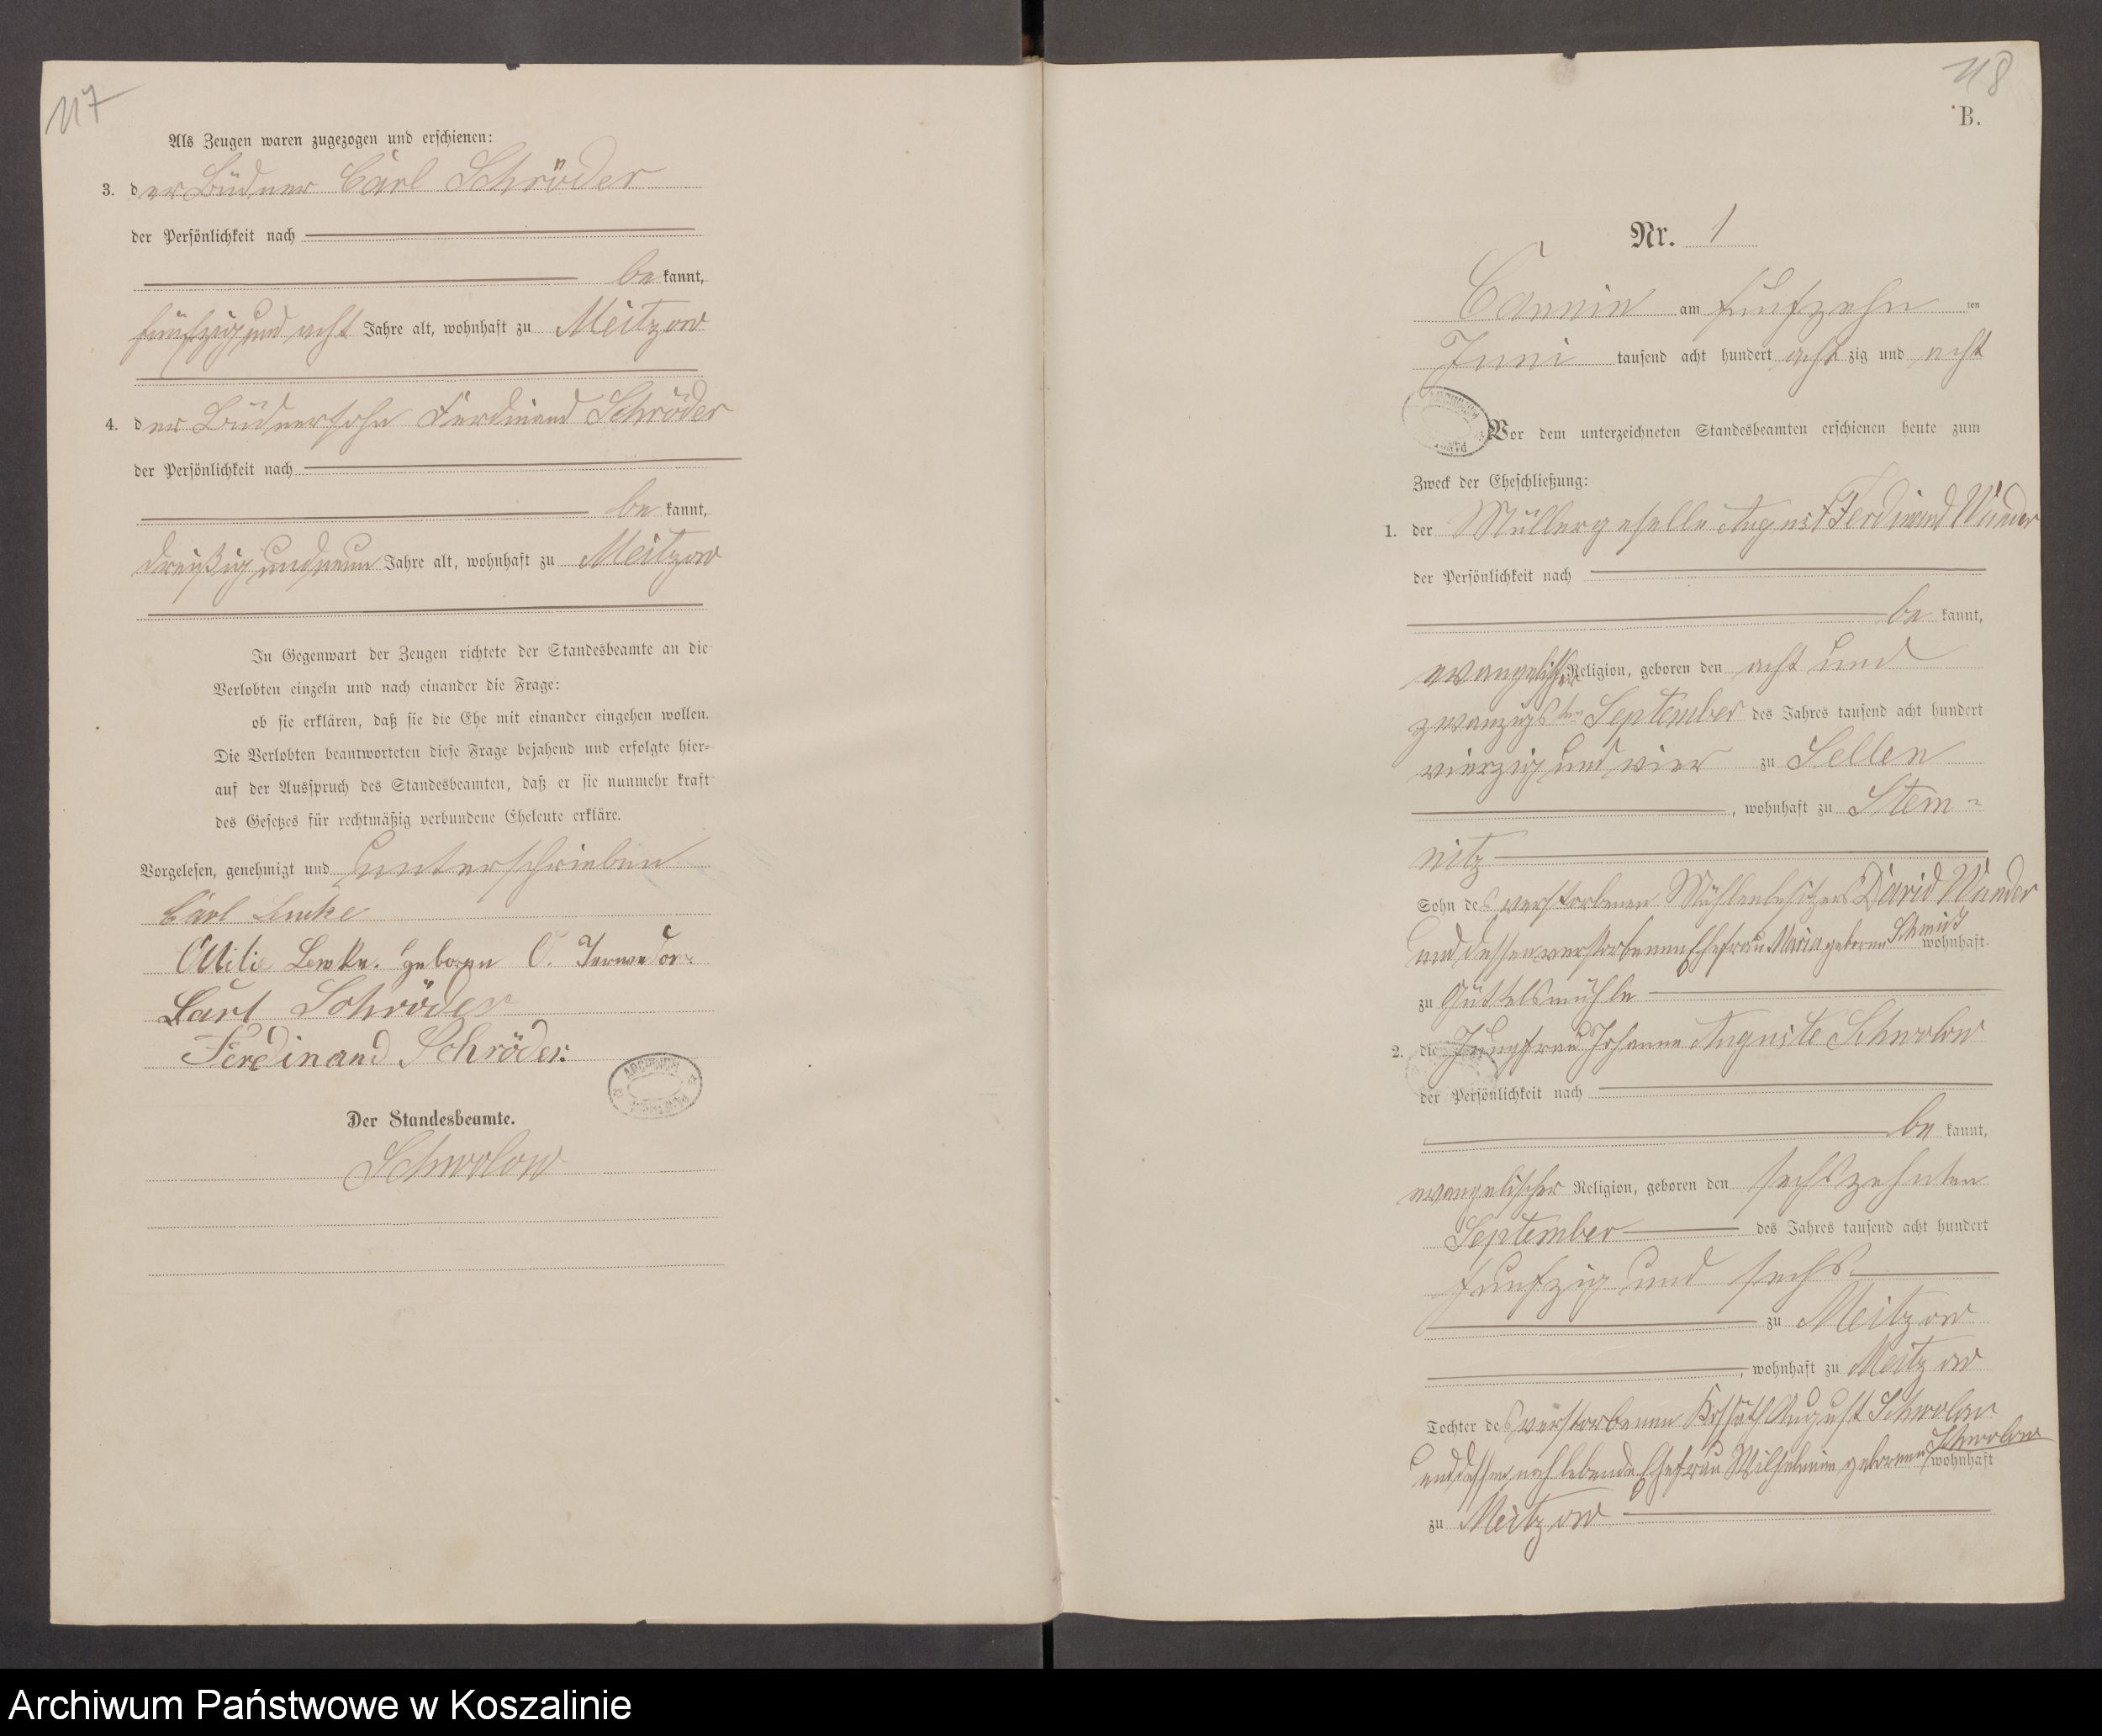 117
Als Zeugen waren zugezogen und erschienen:
3. der Büdner Carl Schröder
der Persönlichkeit nach
bekannt,
fünfzig und acht Jahre alt, wohnhaft zu Meitzow
4. der Büdnersohn Ferdinand Schröder
der Persönlichkeit nach
bekannt,
dreißig und neun Jahre alt, wohnhaft zu Meitzow
In Gegenwart der Zeugen richtete der Standesbeamte an die
Verlobten einzeln und nach einander die Frage:
ob sie erklären, daß sie die Ehe mit einander eingehen wollen.
Die Verlobten beantworteten diese Frage bejahend und erfolgte hier=
auf der Ausspruch des Standesbeamten, daß er sie nunmehr kraft
des Gesetzes für rechtmäßig verbundene Eheleute erkläre.
Vorgelesen, genehmigt und unterschrieben
Carl Lemke
Ottilie Lemke. geboren
Carl Schröder
Ferdinand Schröder.
ARCHIWUM
Der Standesbeamte.
Schwolow
118
B.
Nr. 1
Cannin am fünfzehn ten
Juni tausend acht hundert acht zig und acht
ARCHIWUM
Vor dem unterzeichneten Standesbeamten erschienen heute zum
Zweck der Eheschließung:
1. der Müllergeselle August Ferdinand Wander
der Persönlichkeit nach
bekannt,
evangelischer Religion, geboren den acht und
zwanzigsten September des Jahres tausend acht hundert
vierzig und vier zu Sellen
, wohnhaft zu Stem=
nitz
Sohn des verstorbenen Mühlenbesitzers David Wander
und dessen verstorbenen Ehefrau Maria geborenen Schmidt wohnhaft
zu Güttelsmühle
2. die Jungfrau Johanne Auguste Schwolow
der Persönlichkeit nach
bekannt,
evangelischer Religion, geboren den sechszehnten
September des Jahres tausend acht hundert
fünfzig und sechs
zu Meitzow
, wohnhaft zu Meitzow
Tochter des verstorbenen Kossäth August Schwolow
und dessen noch lebende Ehefrau Wilhelmine geborenen Schwolow wohnhaft
zu Meitzow
Archiwum Państwowe w Koszalinie